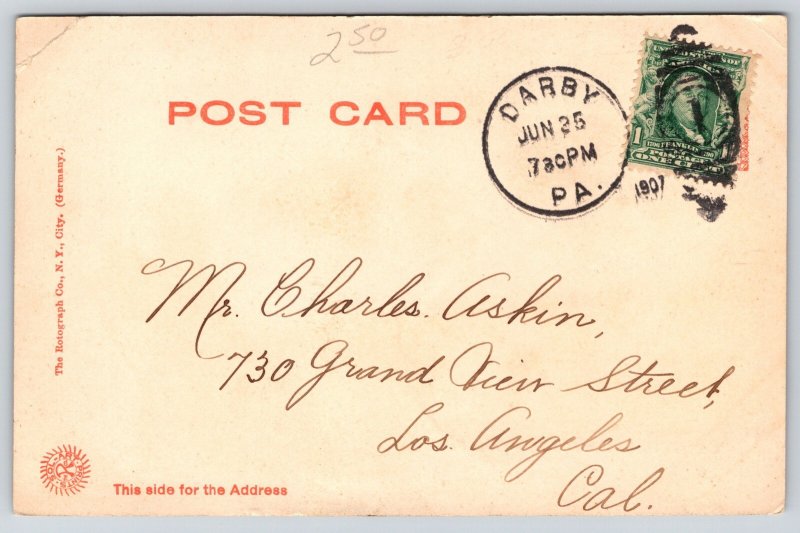 2 50
POST CARD
DARBY
JUN 25
730PM
PA.
1907
1
FRANKLIN
POSTAGE
ONE CENT
The Rotograph Co., N. Y., City. (Germany.)
Mr. Charles. Askin,
730 Grand View Street,
Los Angeles
Cal.
This side for the Address